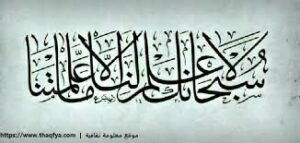 سبحانك لا علم لنا إلا ما علمتنا
موقع معلومة ثقافية | https://www.thaqfya.com